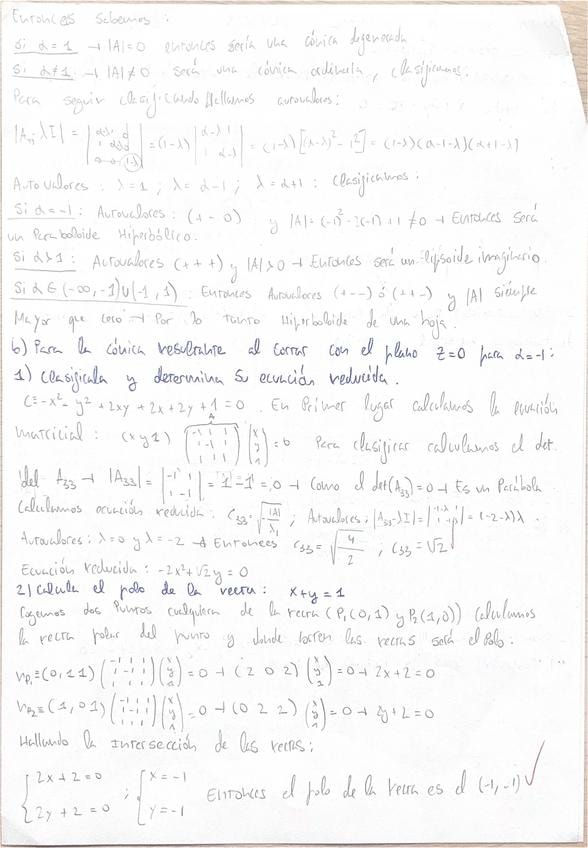 Entonces sabemos:
Si α = 1 → |A|=0 entonces sería una cónica degenerada
Si α≠1 → |A|≠0 será una cónica ordinaria, clasificamos.
Para seguir clasificando Hallamos autovalores:
= (1-λ) | α-λ 1 / 1 α-λ | = (1-λ)[(α-λ)² - 1²] = (1-λ)(α-1-λ)(α+1-λ)
Autovalores: λ=1 ; λ=α-1 ; λ=α+1 : clasificamos:
Si α=-1: Autovalores: (+ - 0) y |A|=(-1)²-2(-1)+1≠0 → Entonces será
un Paraboloide Hiperbólico.
Si α>1: Autovalores (+++) y |A|>0 → Entonces será un elipsoide imaginario.
Si α∈(-∞,-1)∪(-1,1): Entonces Autovalores (+--) ó (++-) y |A| siempre
Mayor que cero → Por lo tanto Hiperboloide de una hoja.
b) Para la cónica resultante al cortar con el plano z=0 para α=-1:
1) Clasifícala y determina su ecuación reducida.
C≡-x²-y²+2xy+2x+2y+1=0. En Primer lugar calculamos la ecuación
matricial: (x y 1) (-1 1 1 / 1 -1 1 / 1 1 1) (x / y / 1) = 0 Para clasificar calculamos el det.
del A₃₃ → |A₃₃| = | -1 1 / 1 -1 | = 1-1=0 → Como el det(A₃₃)=0 → Es un Parábola
Calculamos ecuación reducida: Autovalores: = (-2-λ)λ.
Autovalores: λ=0 y λ=-2 → Entonces c₃₃=√(4/2) ; c₃₃=√2
Ecuación reducida: -2x²+√2y=0
2) Calcula el polo de la recta: x+y=1
Cogemos dos Puntos cualquiera de la recta (P₁(0,1) y P₂(1,0)) calculamos
la recta polar del punto y donde corten las rectas será el Polo:
≡(0,1 1) (-1 1 1 / 1 -1 1 / 1 1 1) (x / y / 1) = 0 → (2 0 2) (x / y / 1) = 0 → 2x+2=0
≡(1,0 1) (-1 1 1 / 1 -1 1 / 1 1 1) (x / y / 1) = 0 → (0 2 2) (x / y / 1) = 0 → 2y+2=0
Hallando la Intersección de las rectas:
{ 2x+2=0 / 2y+2=0 ; { x=-1 / y=-1 Entonces el polo de la recta es el (-1,-1)